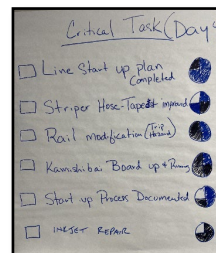 Critical Task (Days
Line Start up plan
Completed
Striper Hose-Taped improved
Rail modification (Trip
Hazard)
Kamishibai Board up & Running
Start up Process Documented
INKJET REPAIR